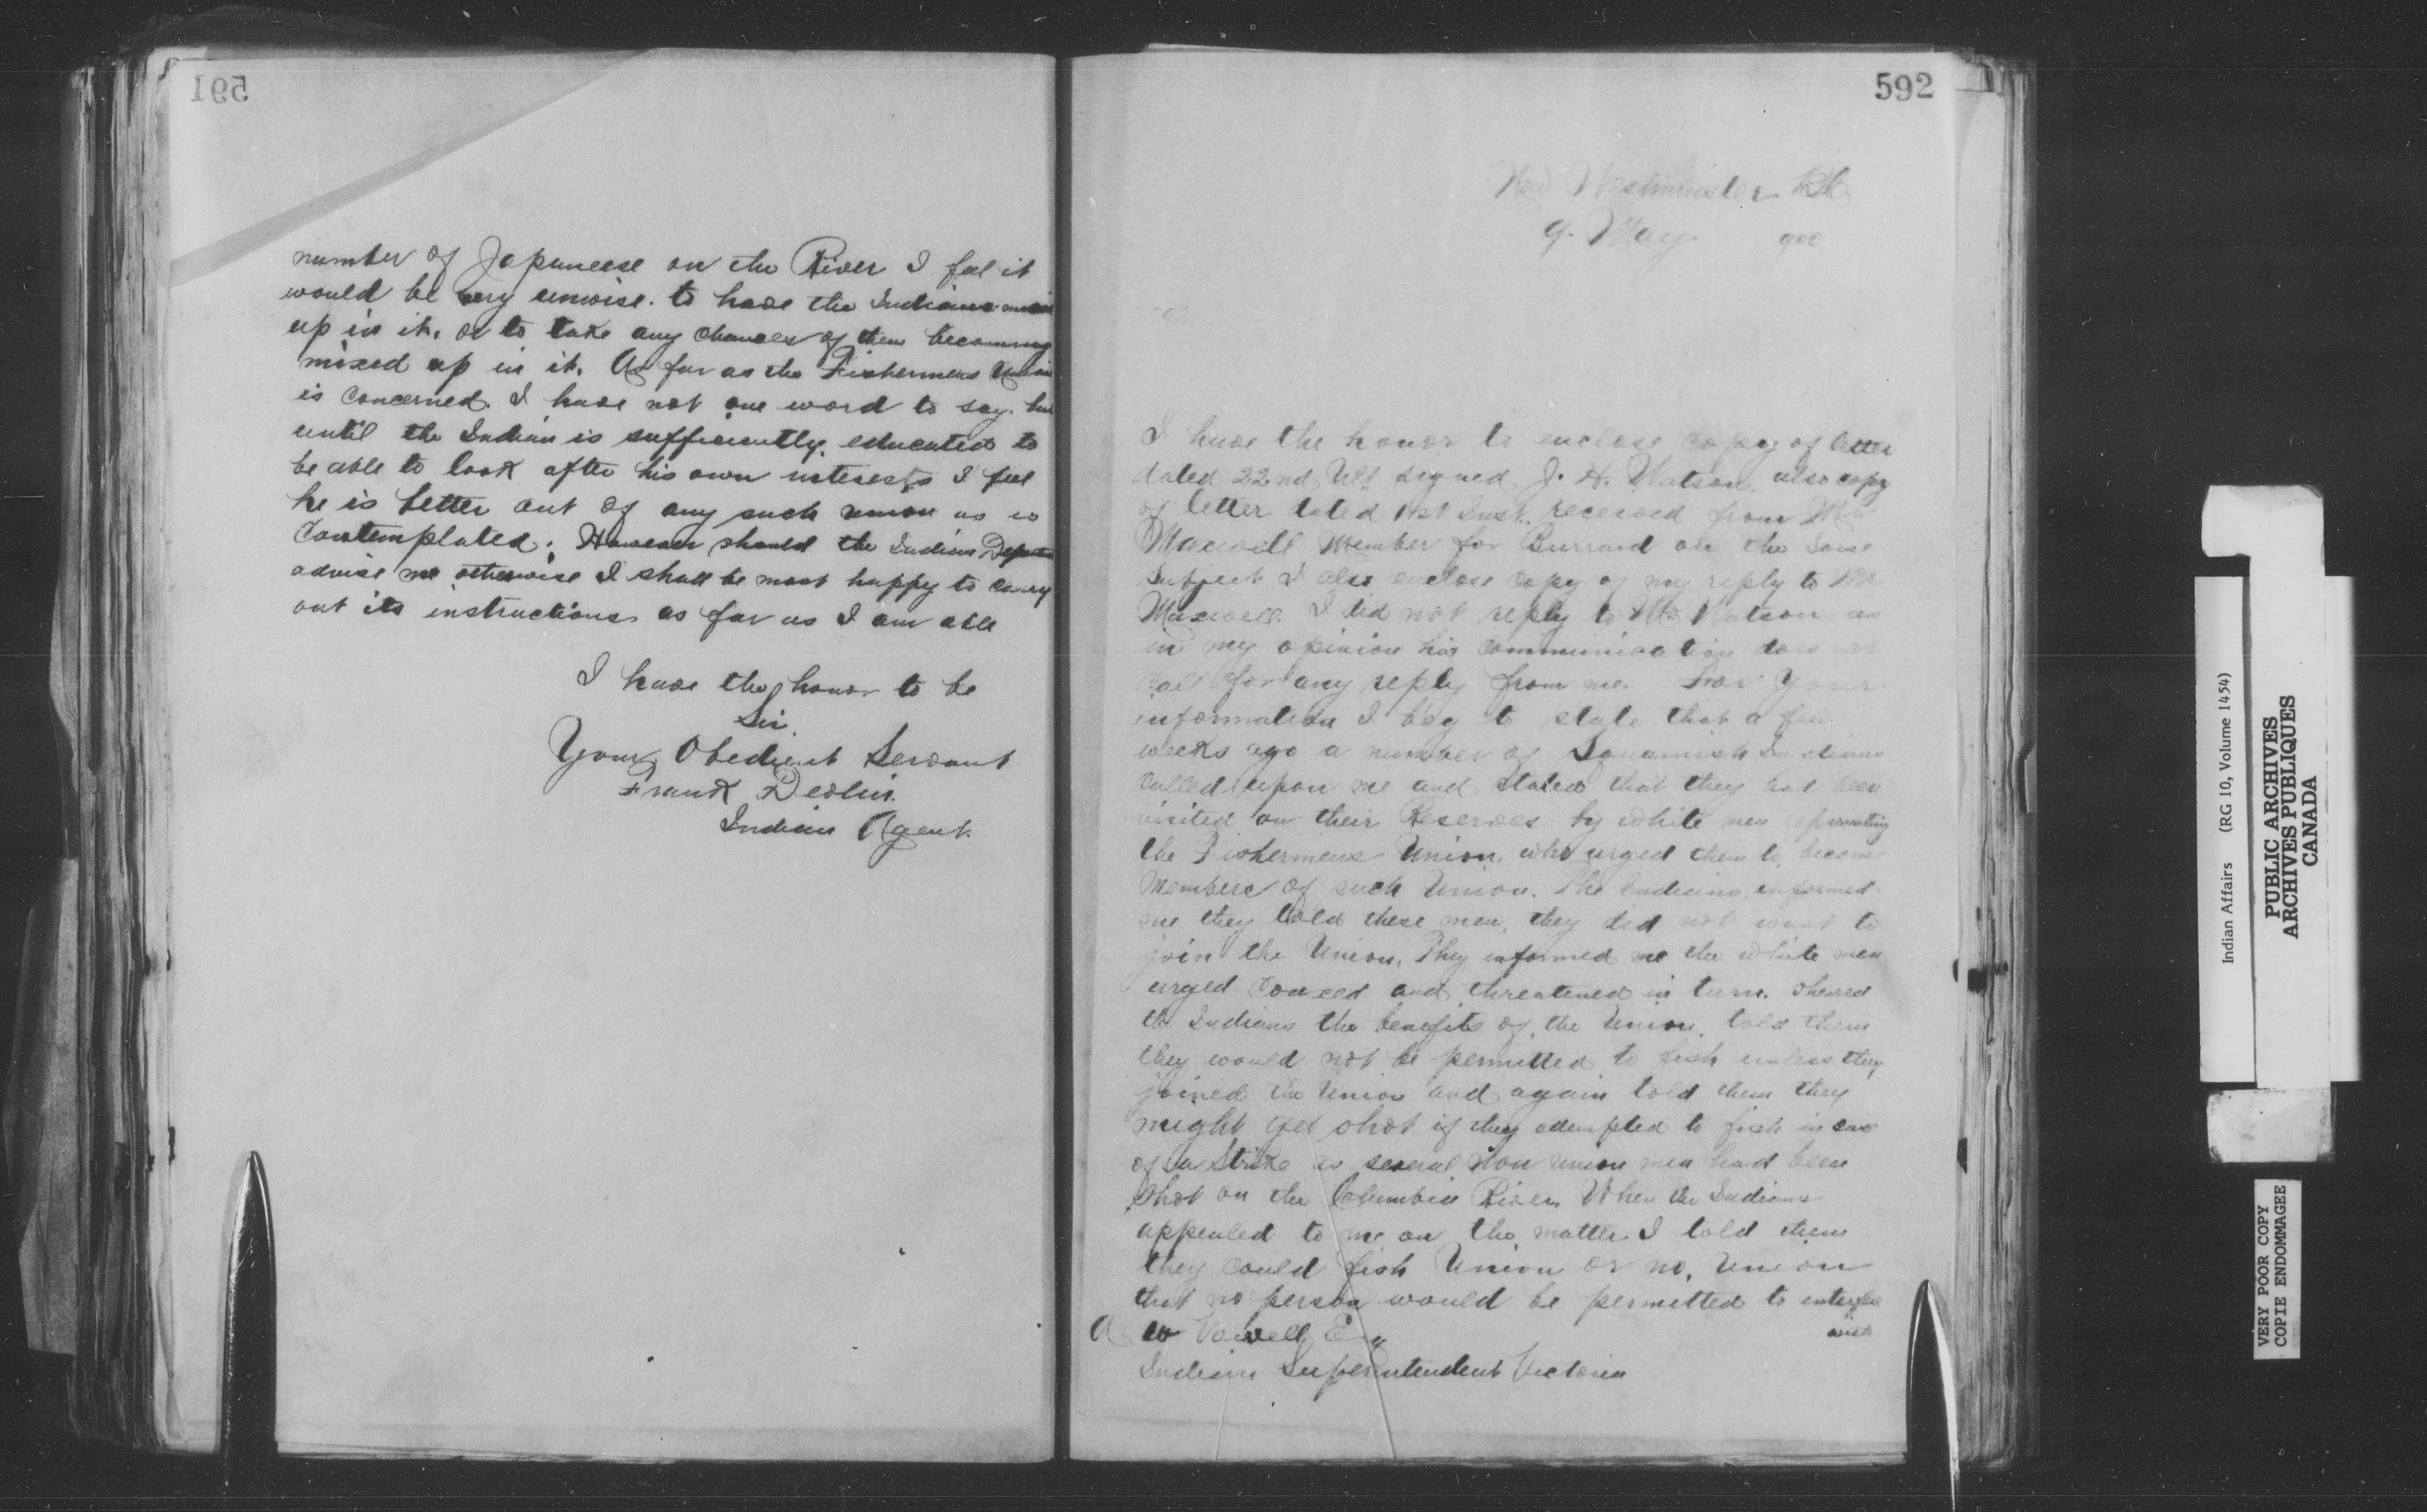 591
number of Japaneese on the River I feel it
would be very unwise. to have the Indians
up in it. or to take any chances of them becoming
mixed up in it. As far as the Fishermens Union
is concerned. I have not one word to say. but
until the Indian is sufficiently. educated to
be able to look after his own interests I feel
he is better out of any such union as is
contemplated. However should the Indian
advise me otherwise I shall be most happy to carry
out its instructions as far as I am able
I have the honor to be
Sir.
Your Obedient Servant
Frank Devlin.
Indian Agent.
592
New Westminster BC
9. May 900
I have the honor to enclose copy of letter
dated 22nd Ult signed J. H. Watson. also copy
of letter dated 1st Inst. received from Mr
Maxwell Member for Burrard on the same
subject I also enclose copy of my reply to Mr
Maxwell. I did not reply to Mr Watson as
in my opinion his communication does not
call for any reply from me. For Your
information I beg to state that a few
weeks ago a number of Squamish Indians
called upon me and stated that they had been
visited on their Reserves by white men representing
the Fishermens Union. who urged them to become
members of such Union. The Indians informed
me they told these men. they did not want to
join the Union. They informed me the white men
urged coaxed and threatened in turn. shewed
the Indians the benefits of the Union. told them
they would not be permitted to fish unless they
joined the Union and again told them they
might get shot if they attempted to fish in case
of a Strike as several non union men had been
shot on the Columbia River. When the Indians
appealed to me on the matter I told them
they could fish Union or no. Union
that no person would be permitted to interfere
with
A W Vowell Esq
Indian Superintendent Victoria
Indian Affairs (RG 10, Volume 1454)
PUBLIC ARCHIVES
ARCHIVES PUBLIQUES
CANADA
VERY POOR COPY
COPIE ENDOMMAGEE